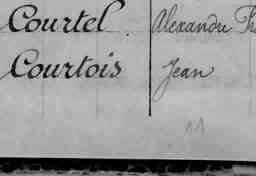 Courtel Alexandre
Courtois Jean
11